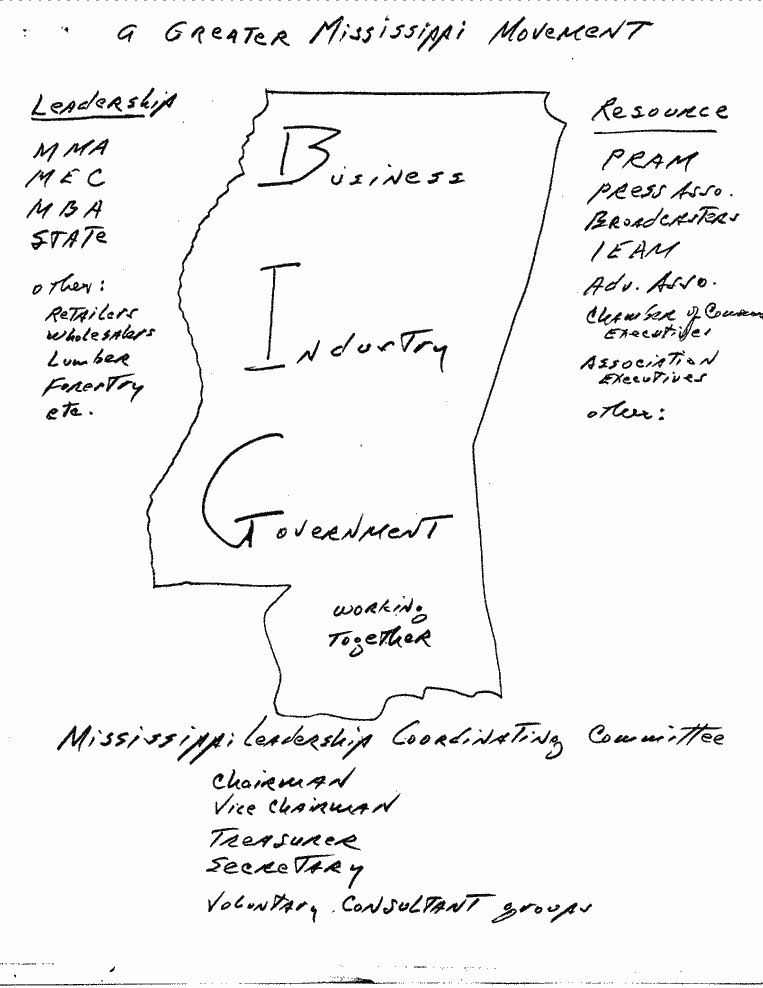 A GREATER MISSISSIPPI MOVEMENT
Leadership
MMA
MEC
MBA
STATE
other:
Retailers
Wholesalers
Lumber
Forestry
etc.
Business
Industry
Government
Working
Together
Resource
PRAM
PRESS ASSO.
BROADCASTERS
IEAM
Adv. Asso.
Chamber of Comm
Executives
Association
Executives
other:
Mississippi Leadership Coordinating Committee
Chairman
Vice Chairman
Treasurer
Secretary
Voluntary Consultant groups